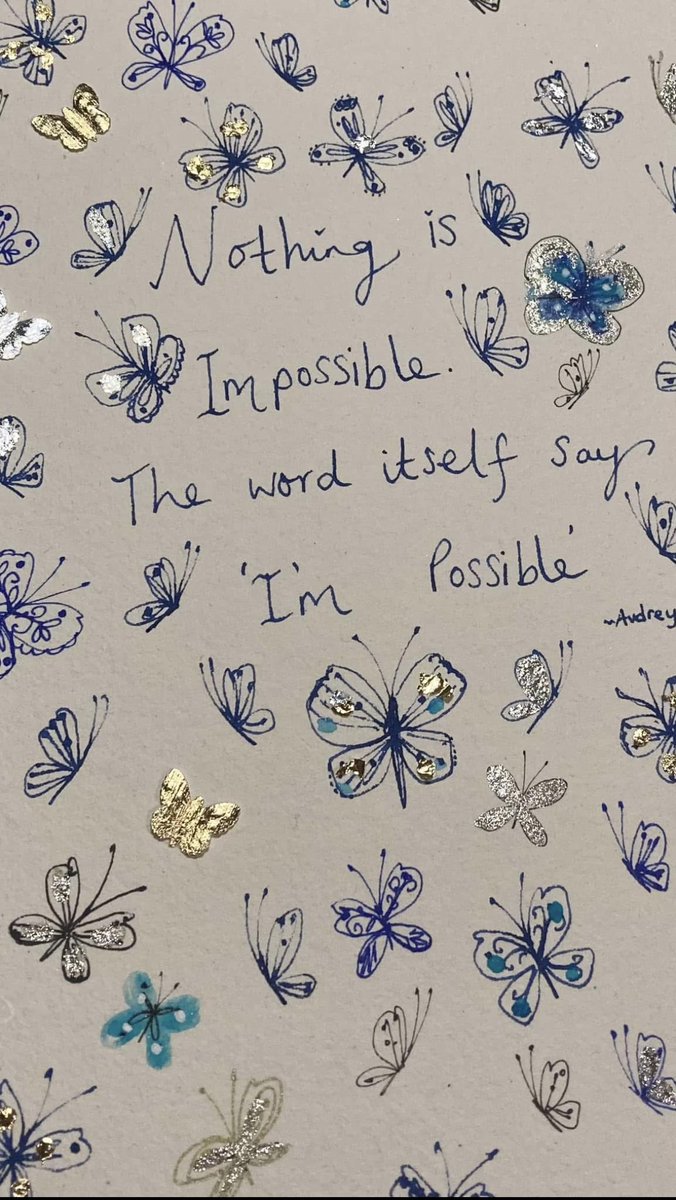 Nothing is
Impossible.
The word itself say
'I'm Possible'
~Audrey